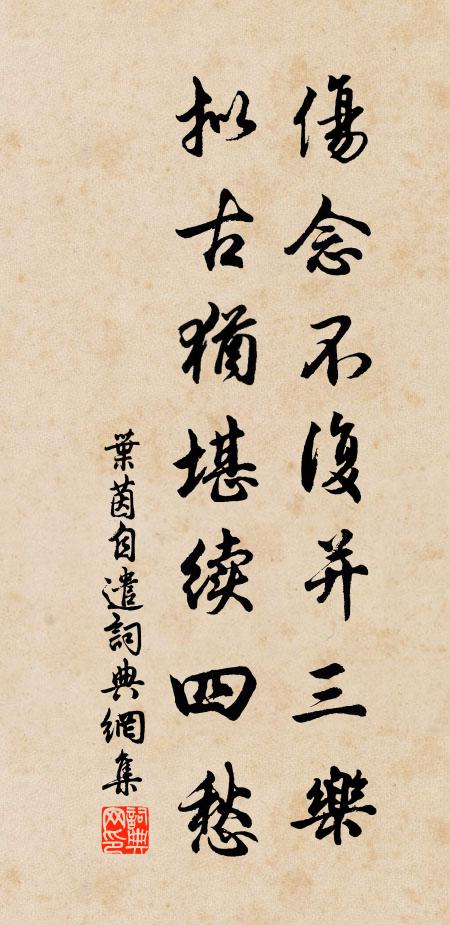 傷念不復并三樂
拟古猶堪续四愁
葉茵自遣詞典網集
詞典网印